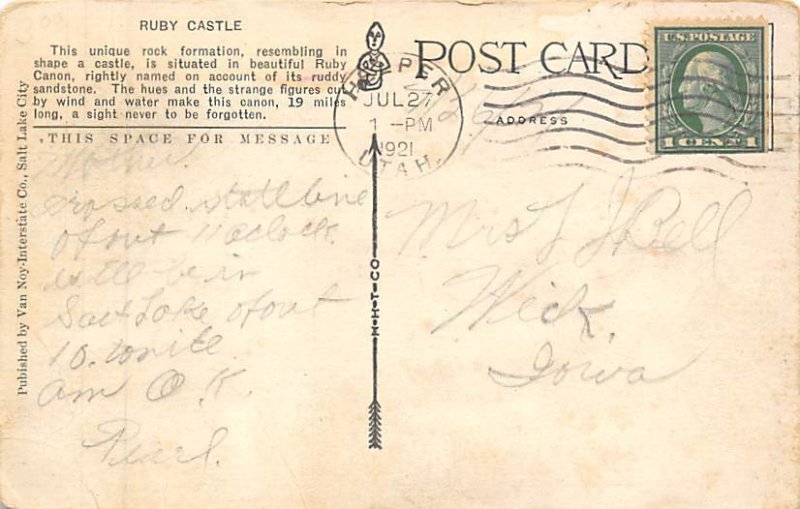 RUBY CASTLE
This unique rock formation, resembling in
shape a castle, is situated in beautiful Ruby
Canon, rightly named on account of its ruddy
sandstone. The hues and the strange figures cut
by wind and water make this canon, 19 miles
long, a sight never to be forgotten.
THIS SPACE FOR MESSAGE
crossed state line
about 11 oclock
will be in
Salt Lake about
10. tonite
am O.K.
Pearl.
Pubished by Van Noy-Interstate Co., Salt Lake City
H-H-T-CO
POST CARD
ADDRESS
HELPER
JUL 27
1 -PM
1921
UTAH.
U.S. POSTAGE
1 CENT 1
Mrs J Bell
Wick,
Iowa